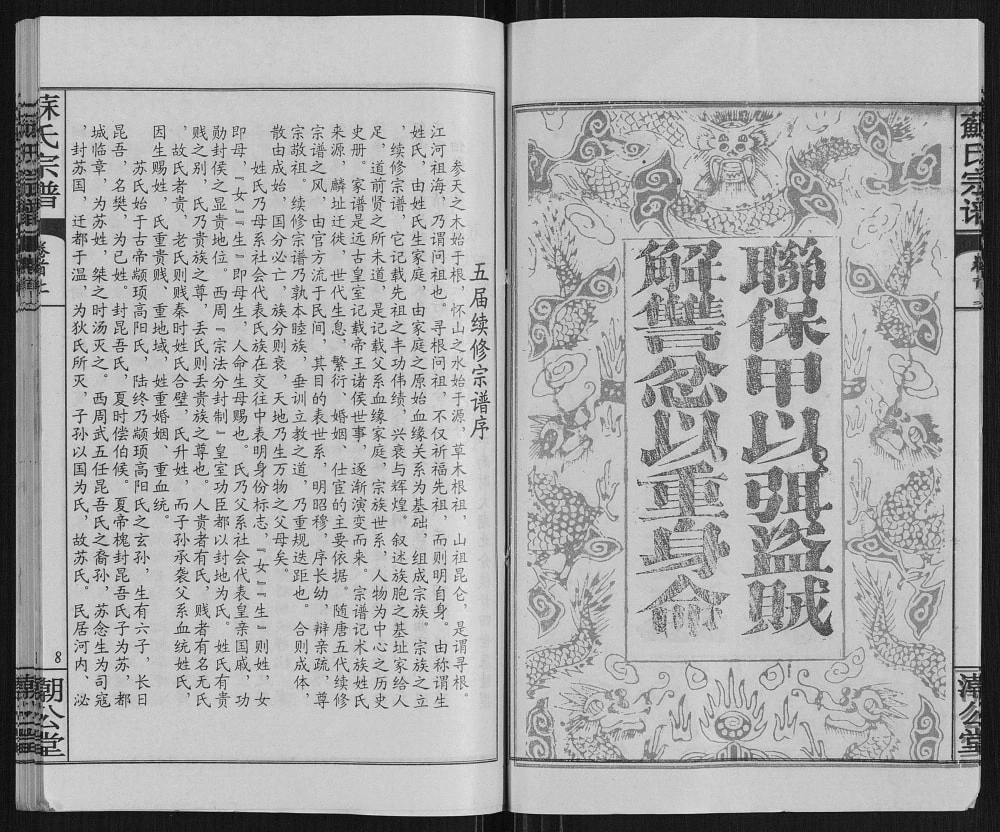 蘇氏宗谱
聯保甲以弭盜賊
解讐忿以重身命
五届续修宗谱序
参天之木始于根，怀山之水始于源，草木根祖，山祖昆仑，是谓寻根。
江河祖海，乃谓问祖也。寻根问祖，不仅祈福先祖，而则明自身。由称谓生
姓氏，由姓氏生家庭，由家庭之原始血缘关系为基础，组成宗族。宗族之立
，续修宗谱，它记载先祖之丰功伟绩，兴衰与辉煌。叙述族胞之基址家给人
足，道前贤之所未道，是记载父系血缘家庭，宗族世系，人物为中心之历史
史册。家谱是远古皇室记载帝王诸侯世事，逐渐演变而来。宗谱记木族姓氏
来源，麟址迁徙，世代生息，繁衍、婚姻、仕宦的主要依据。随唐五代续修
宗谱之风，由官方流于民间，其目的表世系，明昭穆，序长幼，辩亲疏，尊
宗敬祖。续修宗谱乃孰本睦族，垂训立教之道，乃重规迭距也。合则成体，
散由成始，国分必亡，族分则衰，天地乃生万物之父母矣。
姓氏乃母系社会代表氏族在交往中表明身份标志，『女』『生』则姓，女
即母，『女』『生』即母生，人命生母赐也。氏乃父系社会代表皇亲国戚，功
勋封侯之显贵地位。西周『宗法分封制』皇室功臣都以封地为氏。姓氏有贵
贱之别，氏乃贵族之尊，丢氏则丢贵族之尊也。人贵者有氏，贱者有名无氏
，故氏者贵，老氏则贱秦时姓氏合壁，氏升姓，而子孙承袭父系血统姓氏，
因生赐姓，氏重贵贱、重地域，姓重婚姻、重血统。
苏氏始于古帝颛顼高阳氏，陆终乃颛顼高阳氏之玄孙，生有六子，长日
昆吾，名樊，为己姓。封昆吾氏，夏时偿伯候。夏帝槐封昆吾氏子为苏，都
城临章，为苏姓，桀之时汤灭之。西周武五任昆吾氏之裔孙，苏念生为司寇
，封苏国，迁都于温，为狄氏所灭，子孙以国为氏，故苏氏。民居河内，泌
氏宗普
8
朝公堂